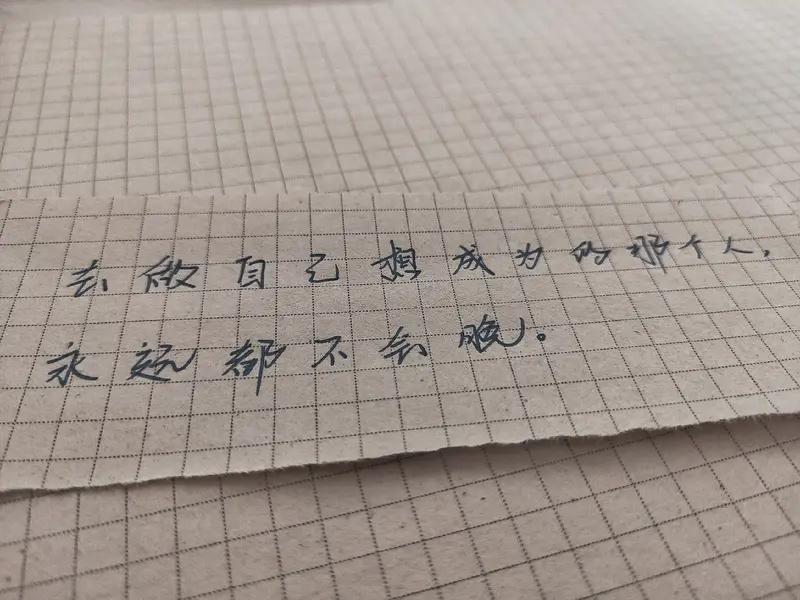 去做自己想成为的那个人，
永远都不会晚。